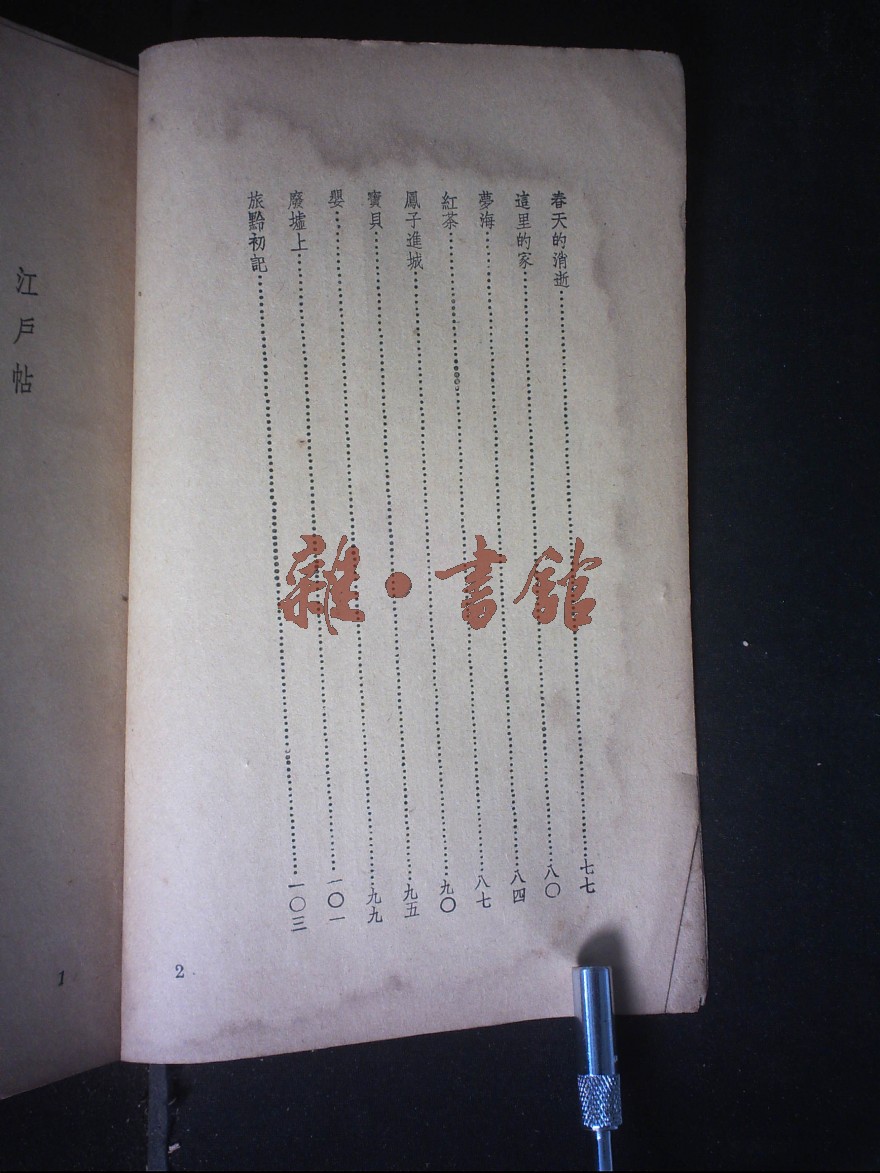 春天的消逝……七七
這里的家……八〇
夢海……八四
紅茶……八七
鳳子進城……九〇
寶貝……九五
嬰……九九
廢墟上……一〇一
旅黔初記……一〇三
2
江戶帖
1
雜·書館